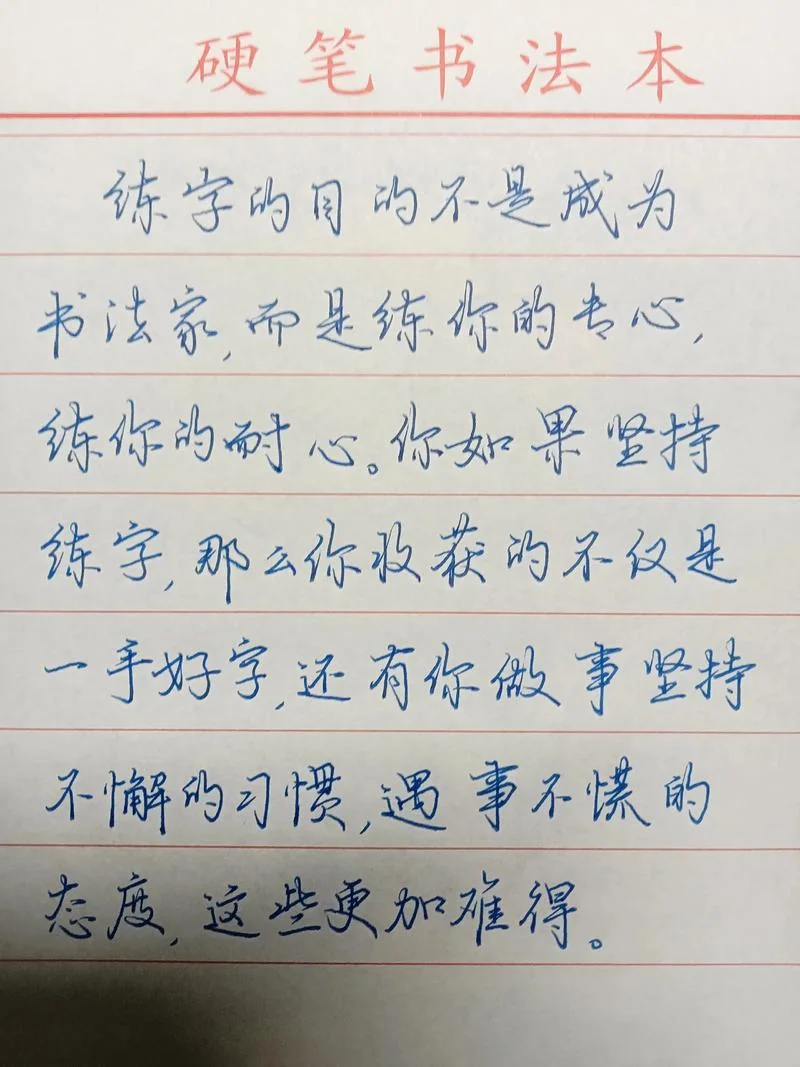 硬笔书法本
练字的目的不是成为
书法家,而是练你的专心,
练你的耐心。你如果坚持
练字,那么你收获的不仅是
一手好字,还有你做事坚持
不懈的习惯,遇事不慌的
态度,这些更加难得。